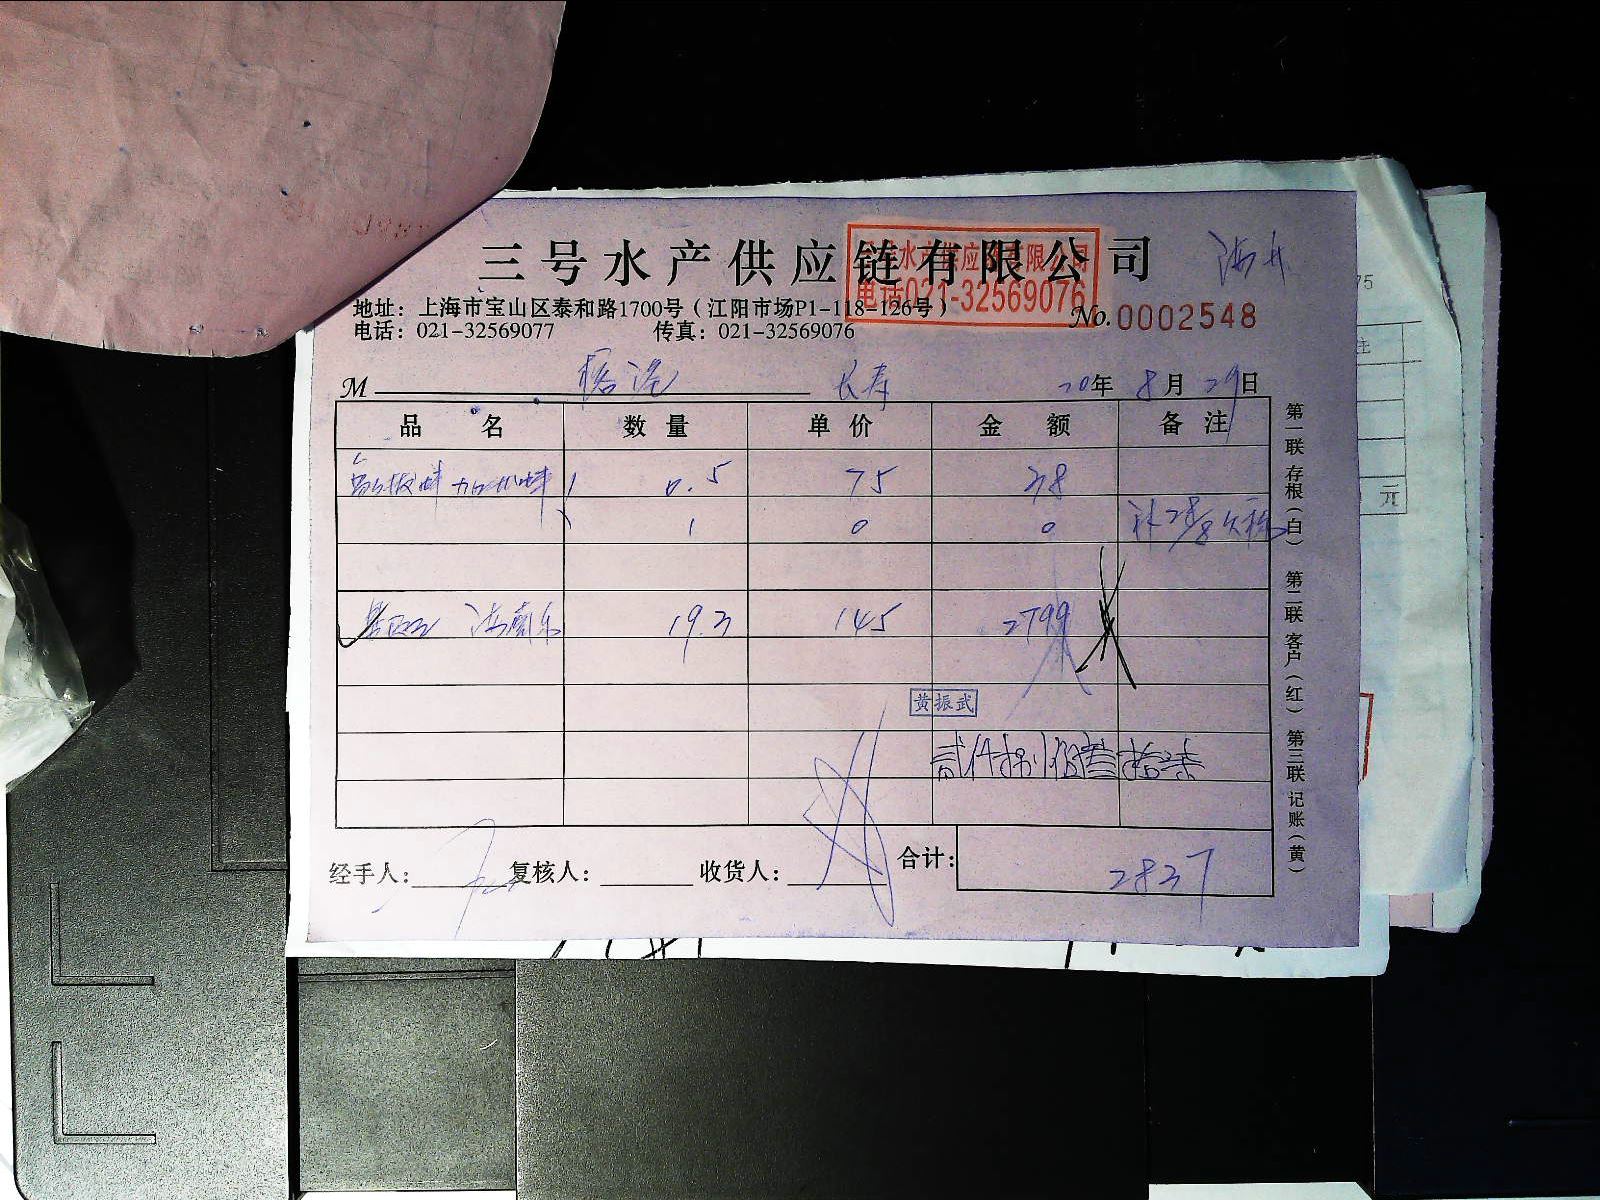 三号水产供应链有限公司
三号水产供应链有限公司
电话021-32569076
地址：上海市宝山区泰和路1700号（江阳市场P1-118-126号）
No.0002548
电话：021-32569077 传真：021-32569076
M 长寿 20年 8月 29日
品名 数量 单价 金额 备注
0.5 75 38
1 0 0
19.3 145 2799
黄振武
贰仟捌佰叁拾柒
经手人： 复核人： 收货人： 合计： 2837
第一联 存根（白） 第二联 客户（红） 第三联 记账（黄）
75
注
元